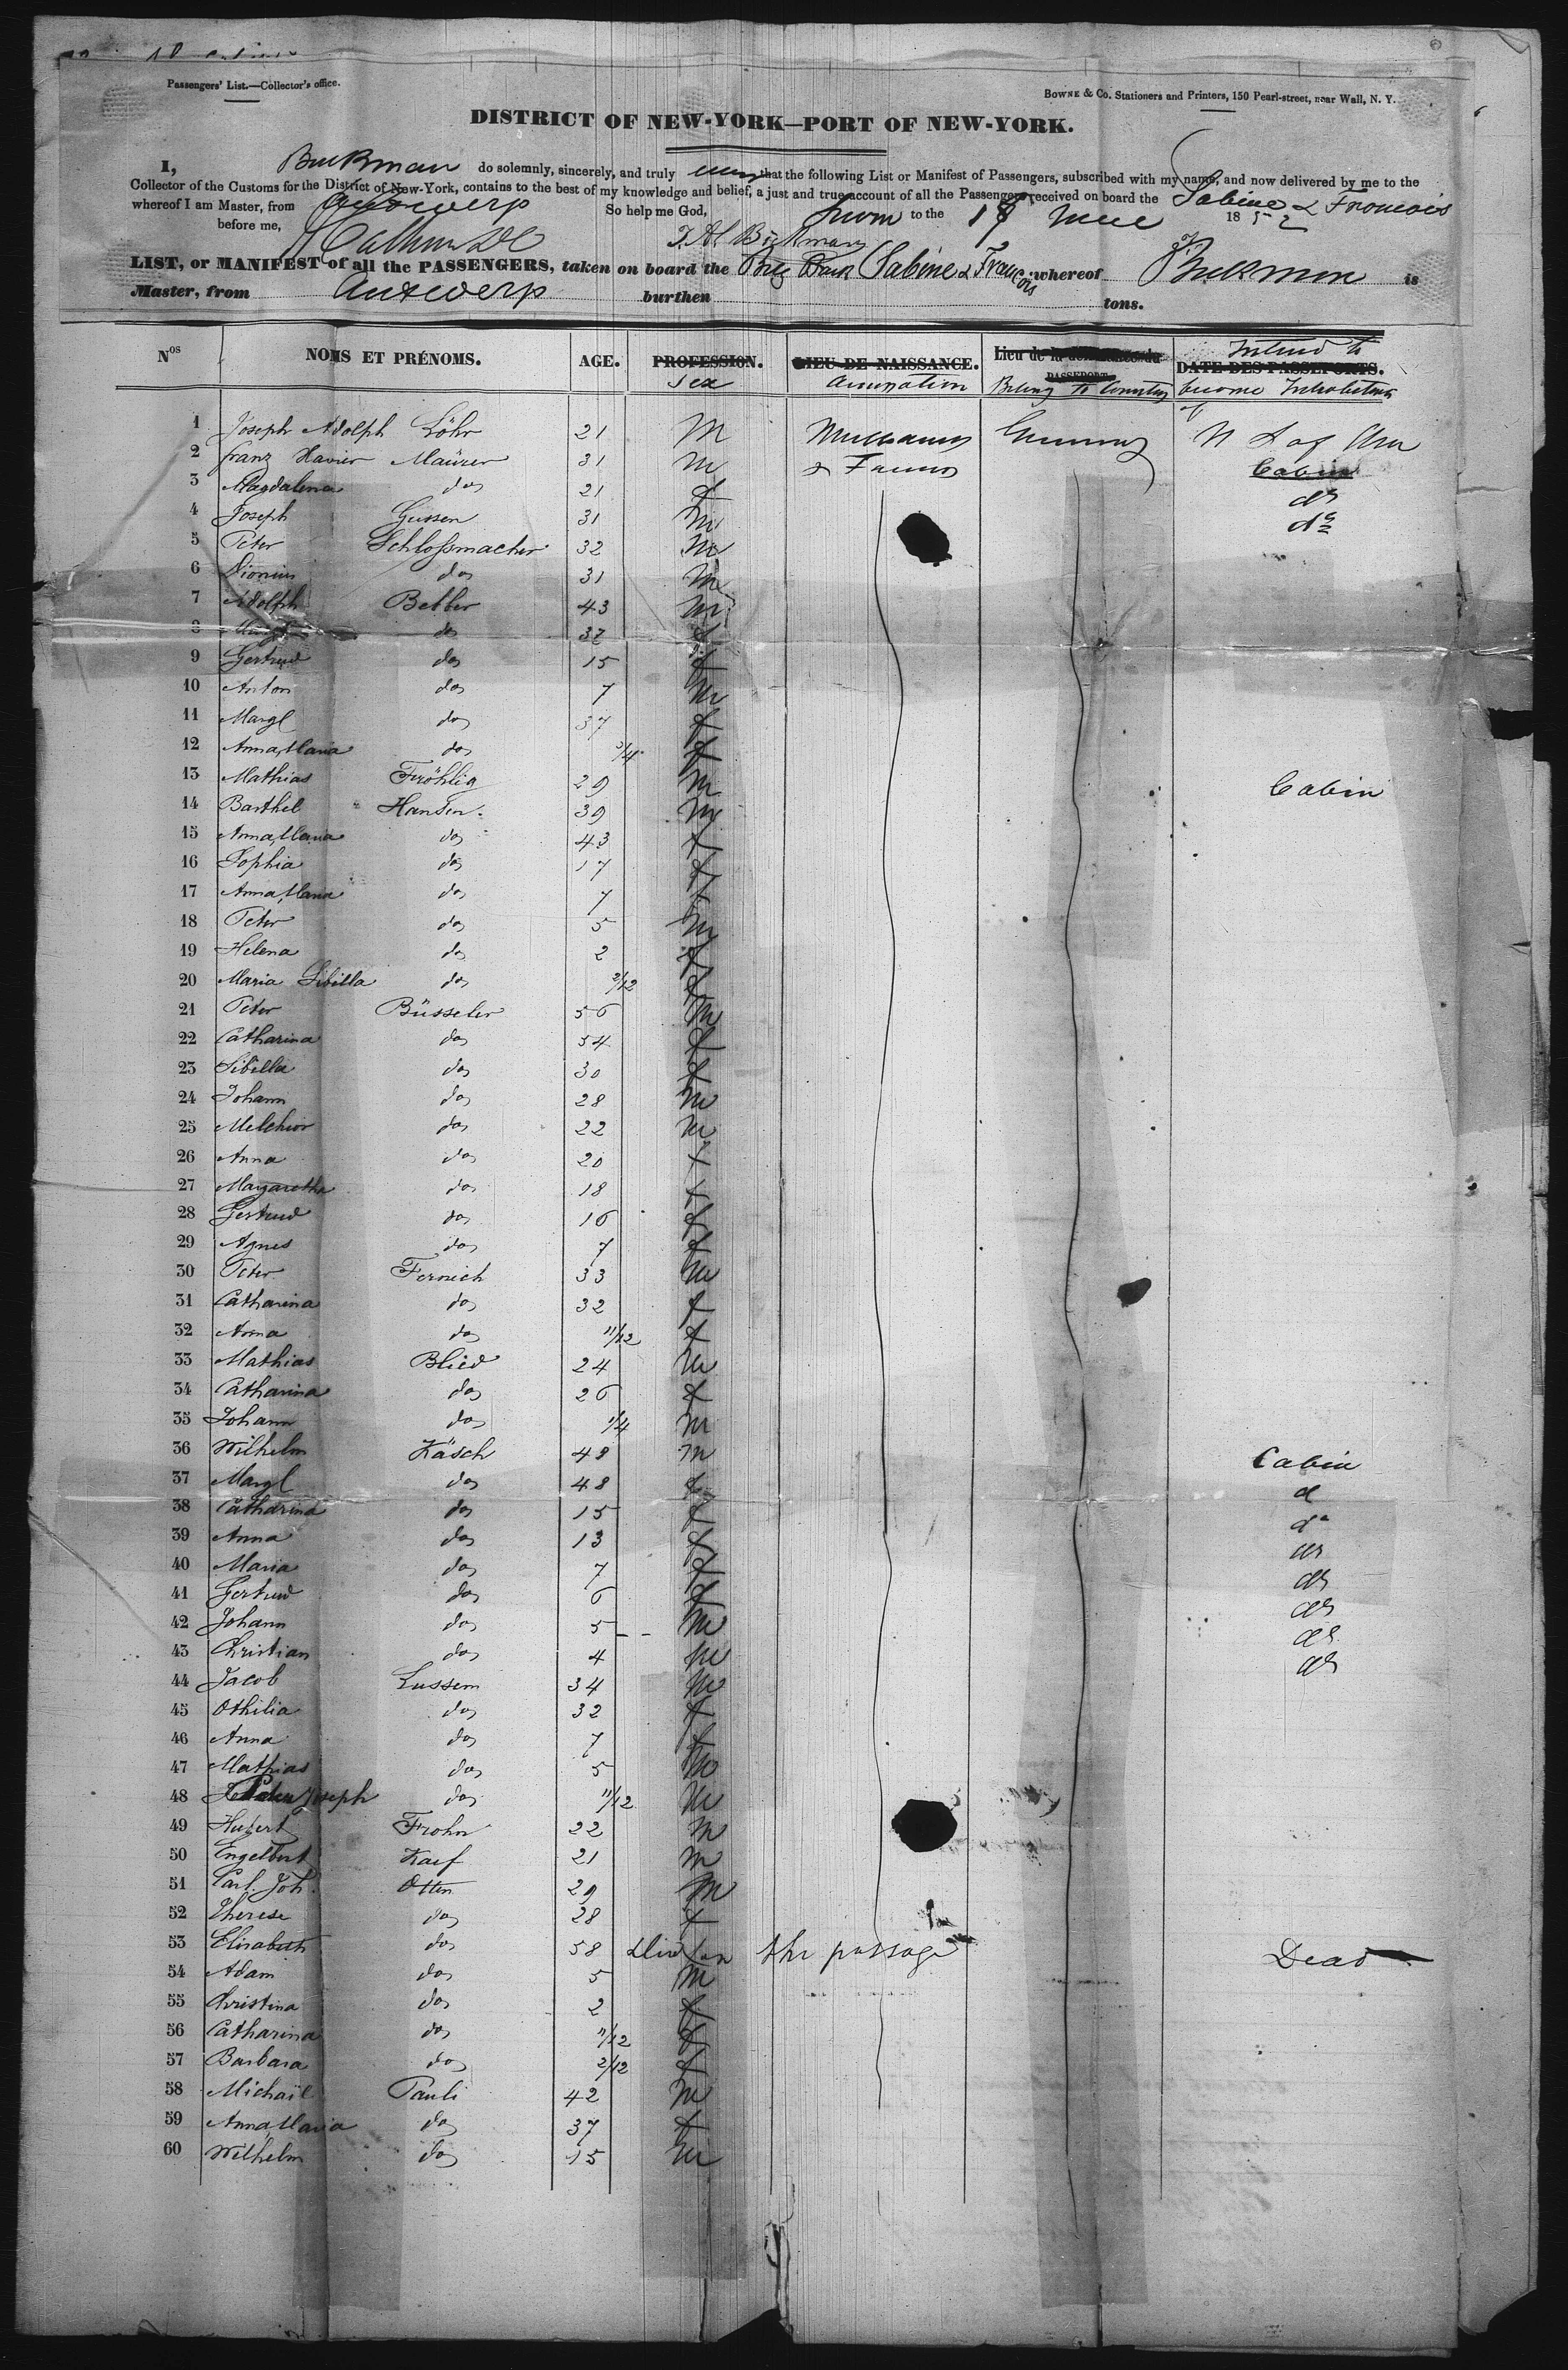 Passengers' List.—Collector's office.
BOWNE & Co. Stationers and Printers, 150 Pearl-street, near Wall, N. Y.
DISTRICT OF NEW-YORK—PORT OF NEW-YORK.
I, Buckman do solemnly, sincerely, and truly that the following List or Manifest of Passengers, subscribed with my name, and now delivered by me to the
Collector of the Customs for the District of New-York, contains to the best of my knowledge and belief, a just and true account of all the Passengers received on board the Sabine & Francois
whereof I am Master, from Antwerp So help me God, Sworn to the 18 1852
before me,
LIST, or MANIFEST of all the PASSENGERS, taken on board the Bark Sabine & Francois whereof Buckman is
Master, from Antwerp burthen tons.
Nos NOMS ET PRÉNOMS. AGE. PROFESSION. LIEU DE NAISSANCE. Lieu de la du PASSEPORT. DATE DES PASSEPORTS.
Sex Occupation Belong to Country Intend to become Inhabitants of
1 Joseph Adolph Löhr 21 M Germany
2 Franz Xavier Maürer 31 m & Cabin
3 Magdalena do 21 f do
4 Joseph Gussen 31 m do
5 Peter Schlossmacher 32 m
6 do 31 m
7 Adolph Better 43 m
8 do 37 f
9 Gertrud do 15 f
10 Anton do 7 m
11 Margl do 37 f
12 Anna Maria do 3/4 f
13 Mathias Fröhlig 29 m Cabin
14 Barthel Hansen. 39 m
15 Anna Maria do 43 f
16 Sophia do 17 f
17 Anna Maria do 7 f
18 Peter do 5 m
19 Helena do 2 f
20 Maria Sibilla do 2/12 f
21 Peter Büsseler 56 m
22 Catharina do 54 f
23 Sibilla do 30 f
24 Johann do 28 m
25 Melchior do 22 m
26 Anna do 20 f
27 Margaretha do 18 f
28 Gertrud do 16 f
29 Agnes do 7 f
30 Peter Fernich 33 m
31 Catharina do 32 f
32 Anna do 11/12 f
33 Mathias Blied 24 m
34 Catharina do 26 f
35 Johann do 1/4 m
36 Wilhelm Käsch 48 m Cabin
37 Margl do 48 f d
38 Catharina do 15 f do
39 Anna do 13 f do
40 Maria do 7 f do
41 Gertrud do 6 f do
42 Johann do 5 m do
43 Christian do 4 m do
44 Jacob Lussem 34 m
45 Othilia do 32 f
46 Anna do 7 f
47 Mathias do 5 m
48 Peter Joseph do 11/12 m
49 Hubert Frohn 22 m
50 Engelbert Kaef 21 m
51 Carl Joh. Otten 29 m
52 Therese do 28 f
53 Elisabeth do 58 Died on the passage Dead
54 Adam do 5 m
55 Christina do 2 f
56 Catharina do 11/12 f
57 Barbara do 2/12 f
58 Michaïl Pauli 42 m
59 Anna Maria do 37 f
60 Wilhelm do 15 m